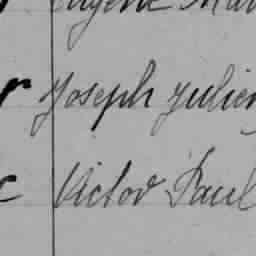 Eugène
Joseph Julien
Victor Paul